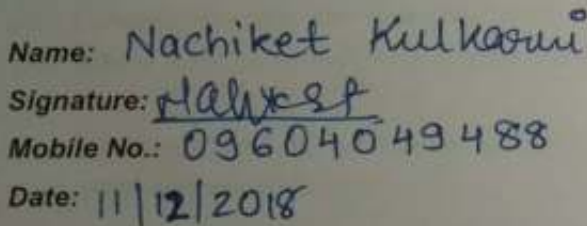 Name: Nachiket Kulkarni
Signature:
Mobile No.: 09604049488
Date: 11/12/2018